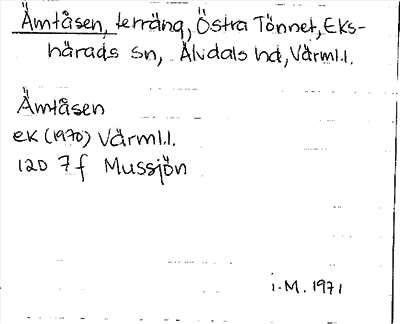 Ämtåsen, terräng, Östra Tönnet, Eks-
härads sn, Älvdals hd, Värml.l.
Ämtåsen
ek (1970) Värml.l.
12D 7f Mussjön
i.M. 1971